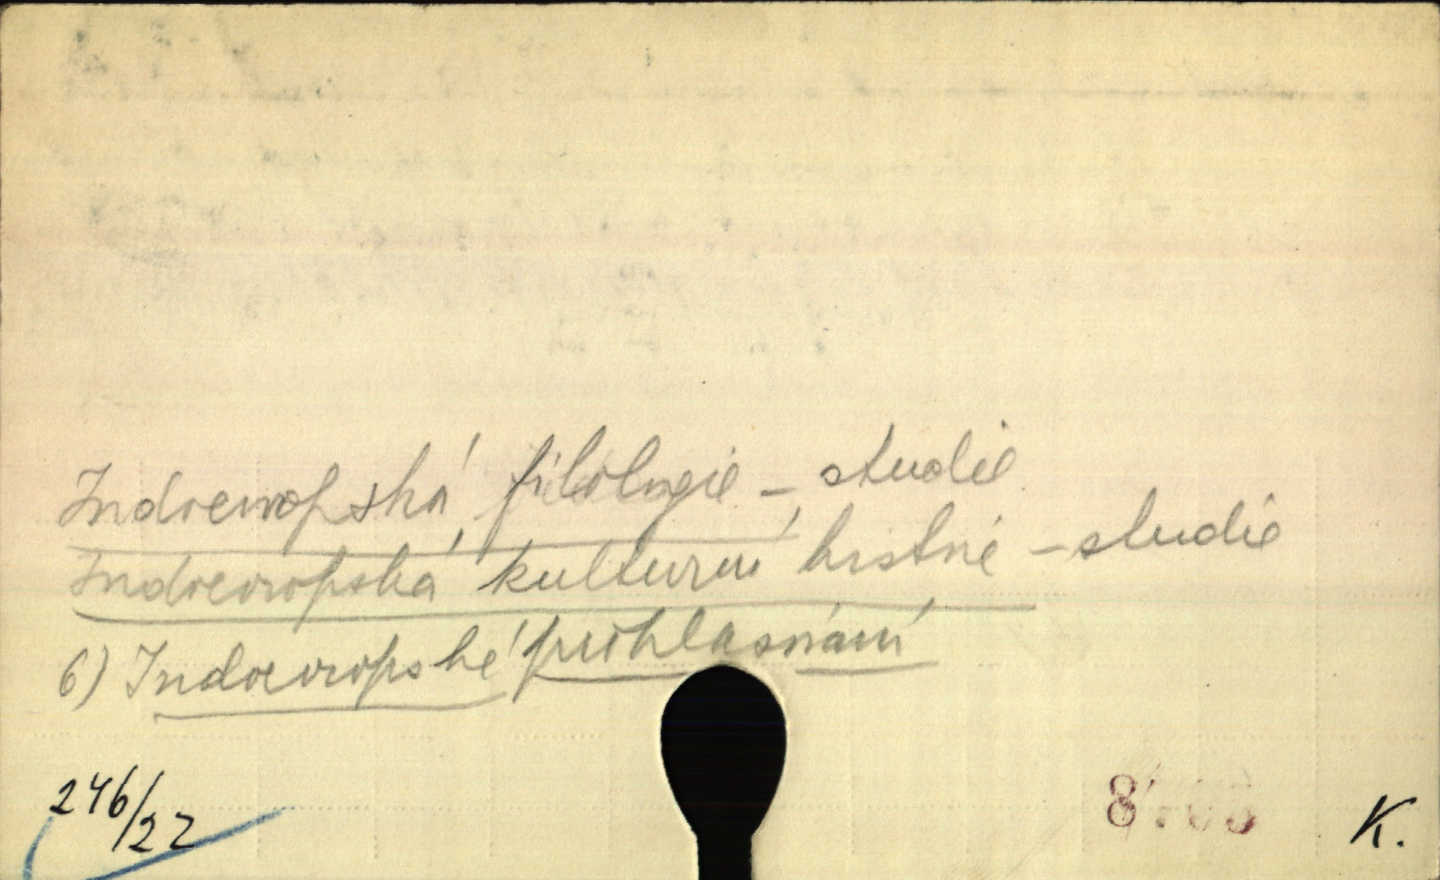 Indoevropská filologie – studie
Indoevropská kulturní histrie – studie
6) Indoevropské
246/22
K.